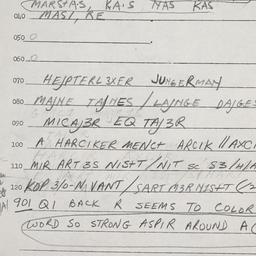 MARSTAS, KA·S NAS KAS
040 MASI, RE
050 0
060 0
070 HEJPTERL3XER JUNGERMAN
080 MAJNE TAJNES / LAJNGE DAJGES
090 MICAJ3R EQ TAJ3R
100 A HARCIKER MENCT ARCIK // AXCI
110 MIR ART3S NIStT / NIT SC S3/H/A
120 KOP 3/0-N VANT / SART M3R NIStT
901 QI BACK R SEEMS TO COLOR
WORD SO STRONG ASPIR AROUND A